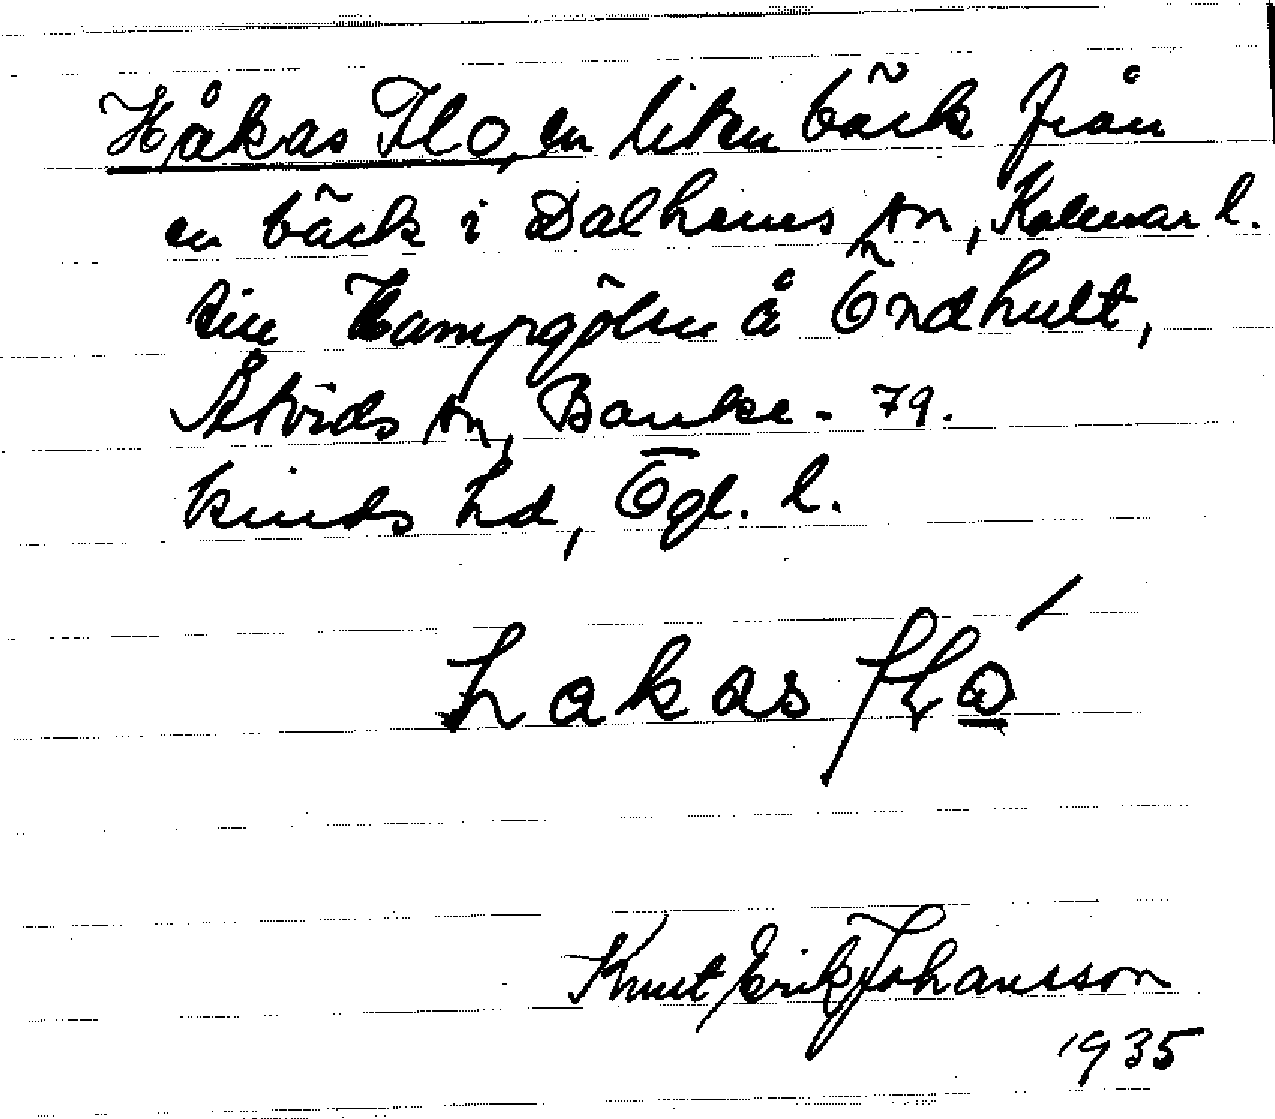 Håkas Flo, en liten bäck från
en bäck i Dalhems sn, Kalmar l.
till Hampgölen å Öndhult,
Åtvids sn, Banke- 79.
kinds hd, Ögl. l.
hakas flo
Knut Erik Johansson
1935